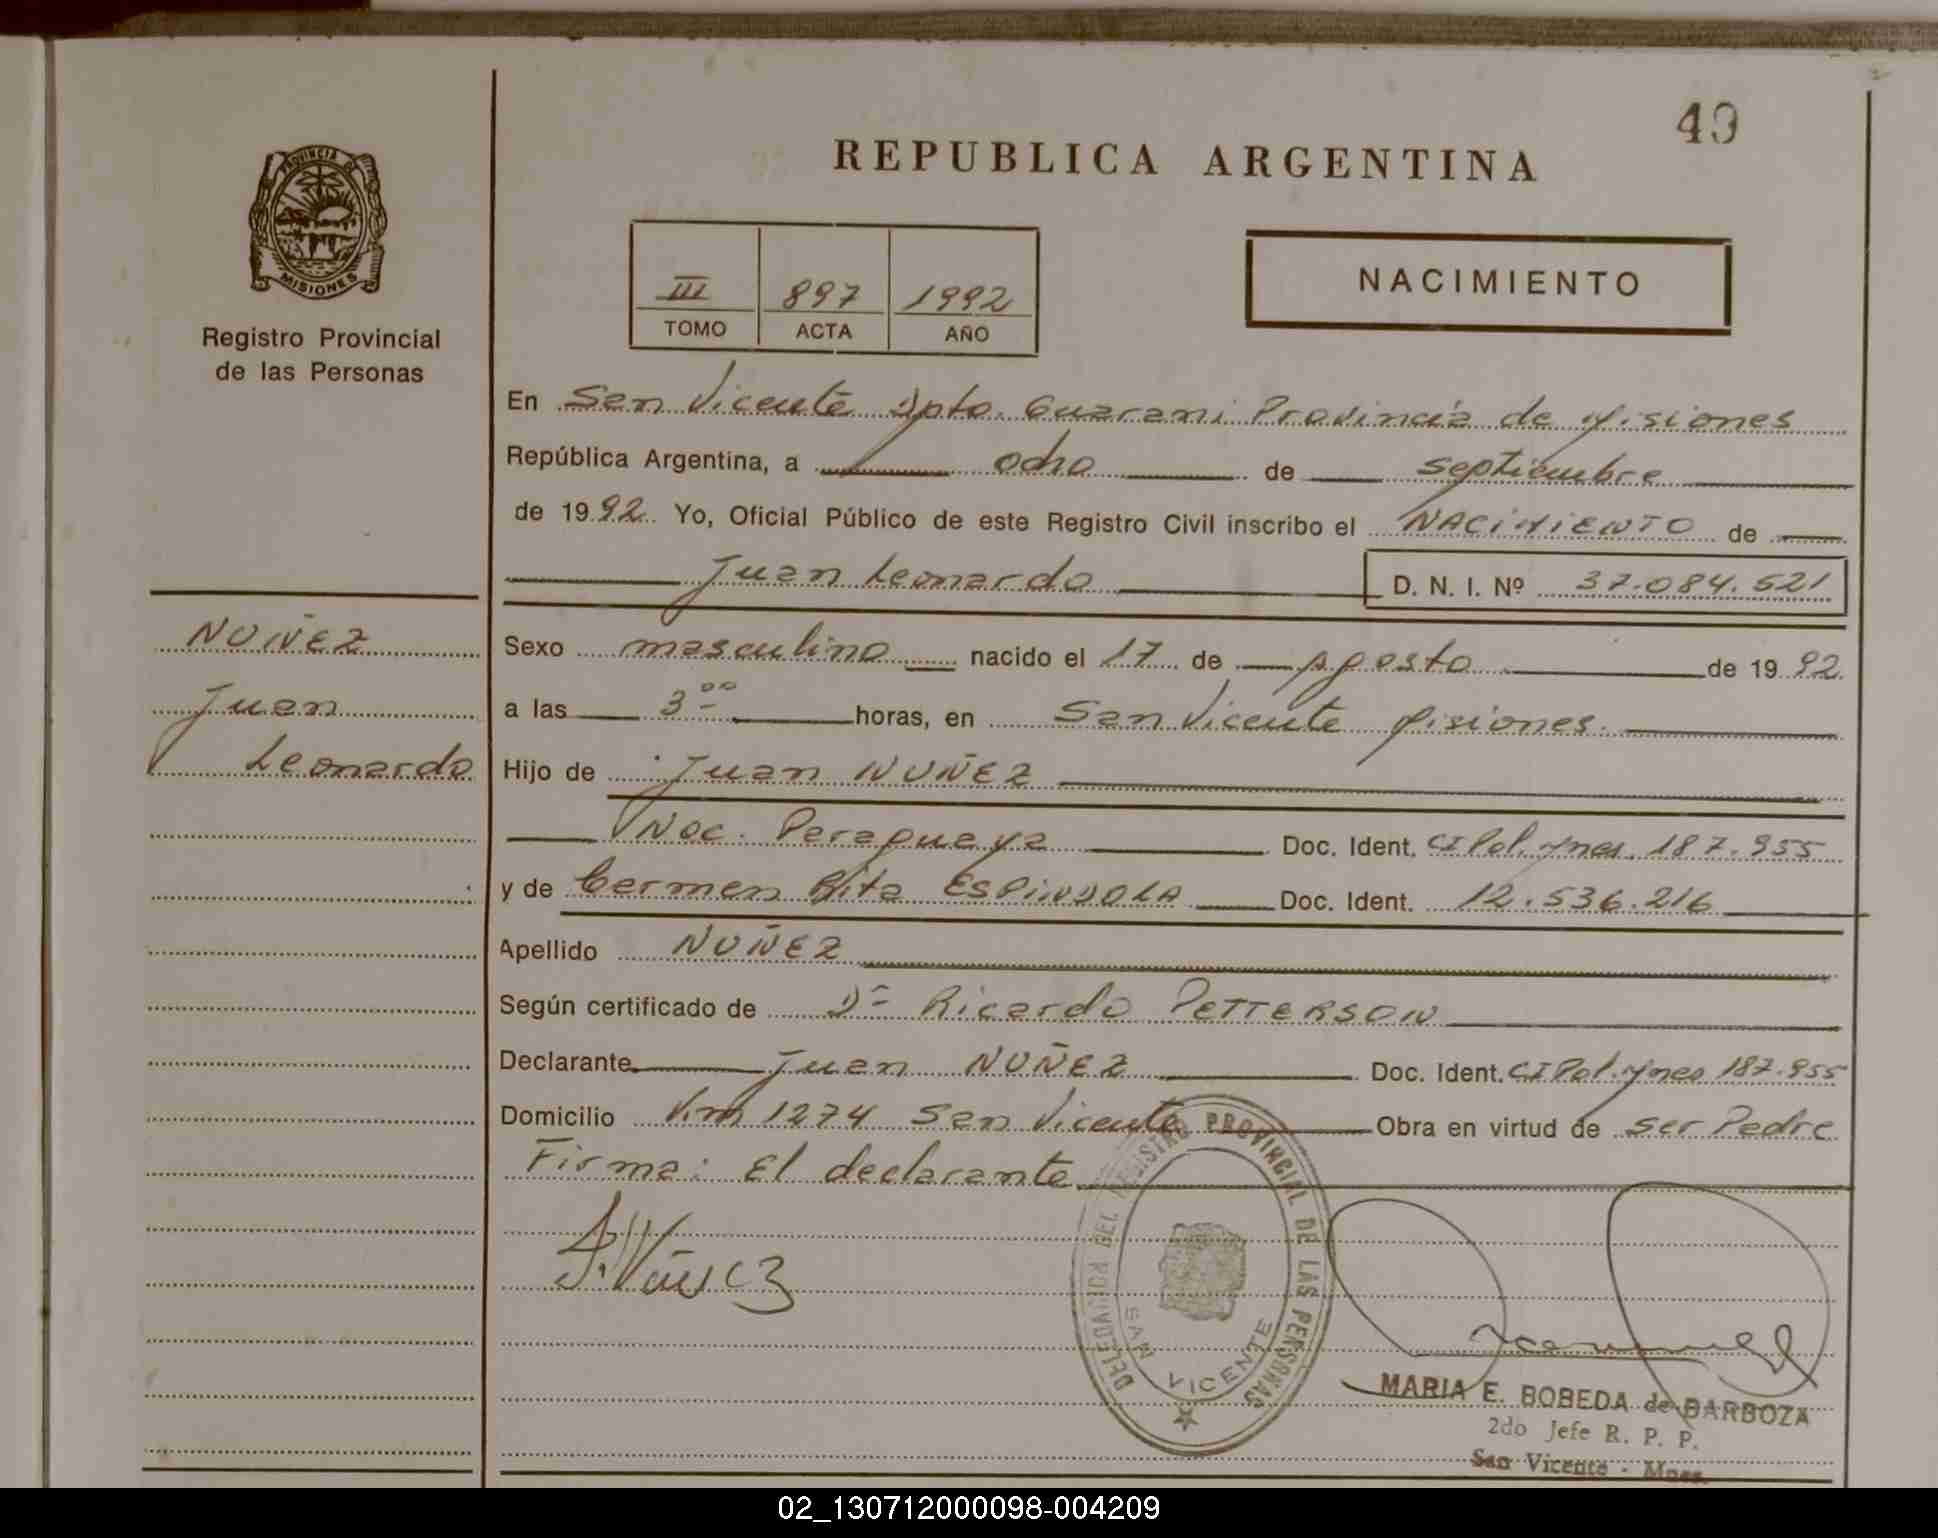 49
REPUBLICA ARGENTINA
PROVINCIA DE
MISIONES
Registro Provincial
de las Personas
III 897 1992
TOMO ACTA AÑO
NACIMIENTO
En San Vicente Dpto. Guarani Provincia de Misiones
República Argentina, a ocho de septiembre
de 1992. Yo, Oficial Público de este Registro Civil inscribo el NACIMIENTO de
Juan Leonardo D. N. I. Nº 37.084.521
NUÑEZ
Juan
Leonardo
Sexo masculino nacido el 17 de agosto de 1992
a las 3 00 horas, en San Vicente Misiones.
Hijo de Juan NUÑEZ
Nac. Paraguaya Doc. Ident. CI Pol. Mnes. 187.955
y de Carmen Rita ESPINDOLA Doc. Ident. 12.536.216
Apellido NUÑEZ
Según certificado de Dr Ricardo PETTERSON
Declarante Juan NUÑEZ Doc. Ident. CI Pol. Mnes 187.955
Domicilio Km 1274 San Vicente Obra en virtud de ser Padre
Firma: El declarante
J. Núñez
DELEGACION DEL REGISTRO PROVINCIAL DE LAS PERSONAS
SAN VICENTE
MARIA E. BOBEDA de BARBOZA
2do Jefe R. P. P.
San Vicente - Mnes.
02_130712000098-004209